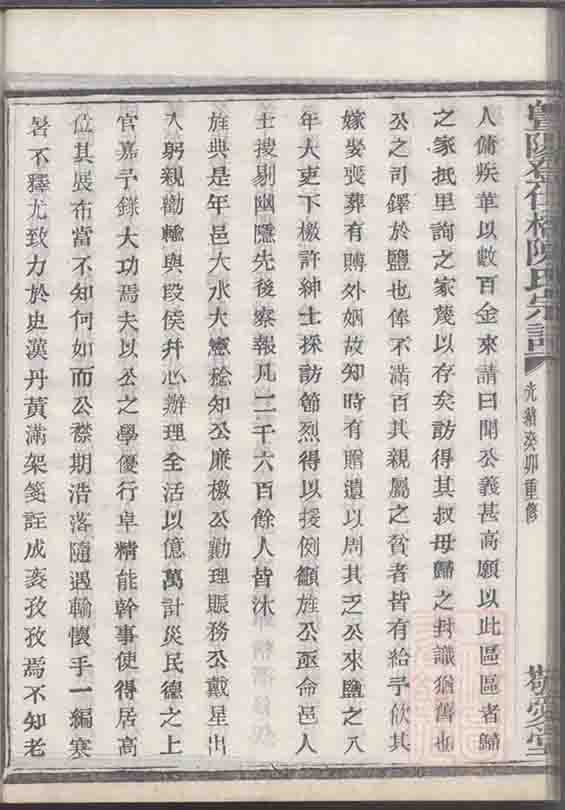 陳氏宗譜
光緒癸卯重修
人傭疾革以數百金來請曰聞公義甚高願以此區區者歸
之家抵里詢之家蔑以存矣訪得其叔母歸之封識猶舊也
公之司鐸於鹽也俸不滿百其親屬之貧者皆有給予佽其
嫁娶喪葬有賻外姻故知時有贈遺以周其乏公來鹽之八
年大吏下檄許紳士採訪節烈得以援例籲旌公亟命邑人
士搜剔幽隱先後察報凡二千六百餘人皆沐
旌典是年邑大水大憲稔知公廉檄公勸理賬務公戴星出
入躬親勸輸與段侯幷心辦理全活以億萬計災民德之上
官嘉予錄大功焉夫以公之學優行卓精能幹事使得居高
位其展布當不知何如而公襟期浩落隨遇輸懷手一編寒
暑不釋尤致力於史漢丹黃滿架箋註成袠孜孜焉不知老